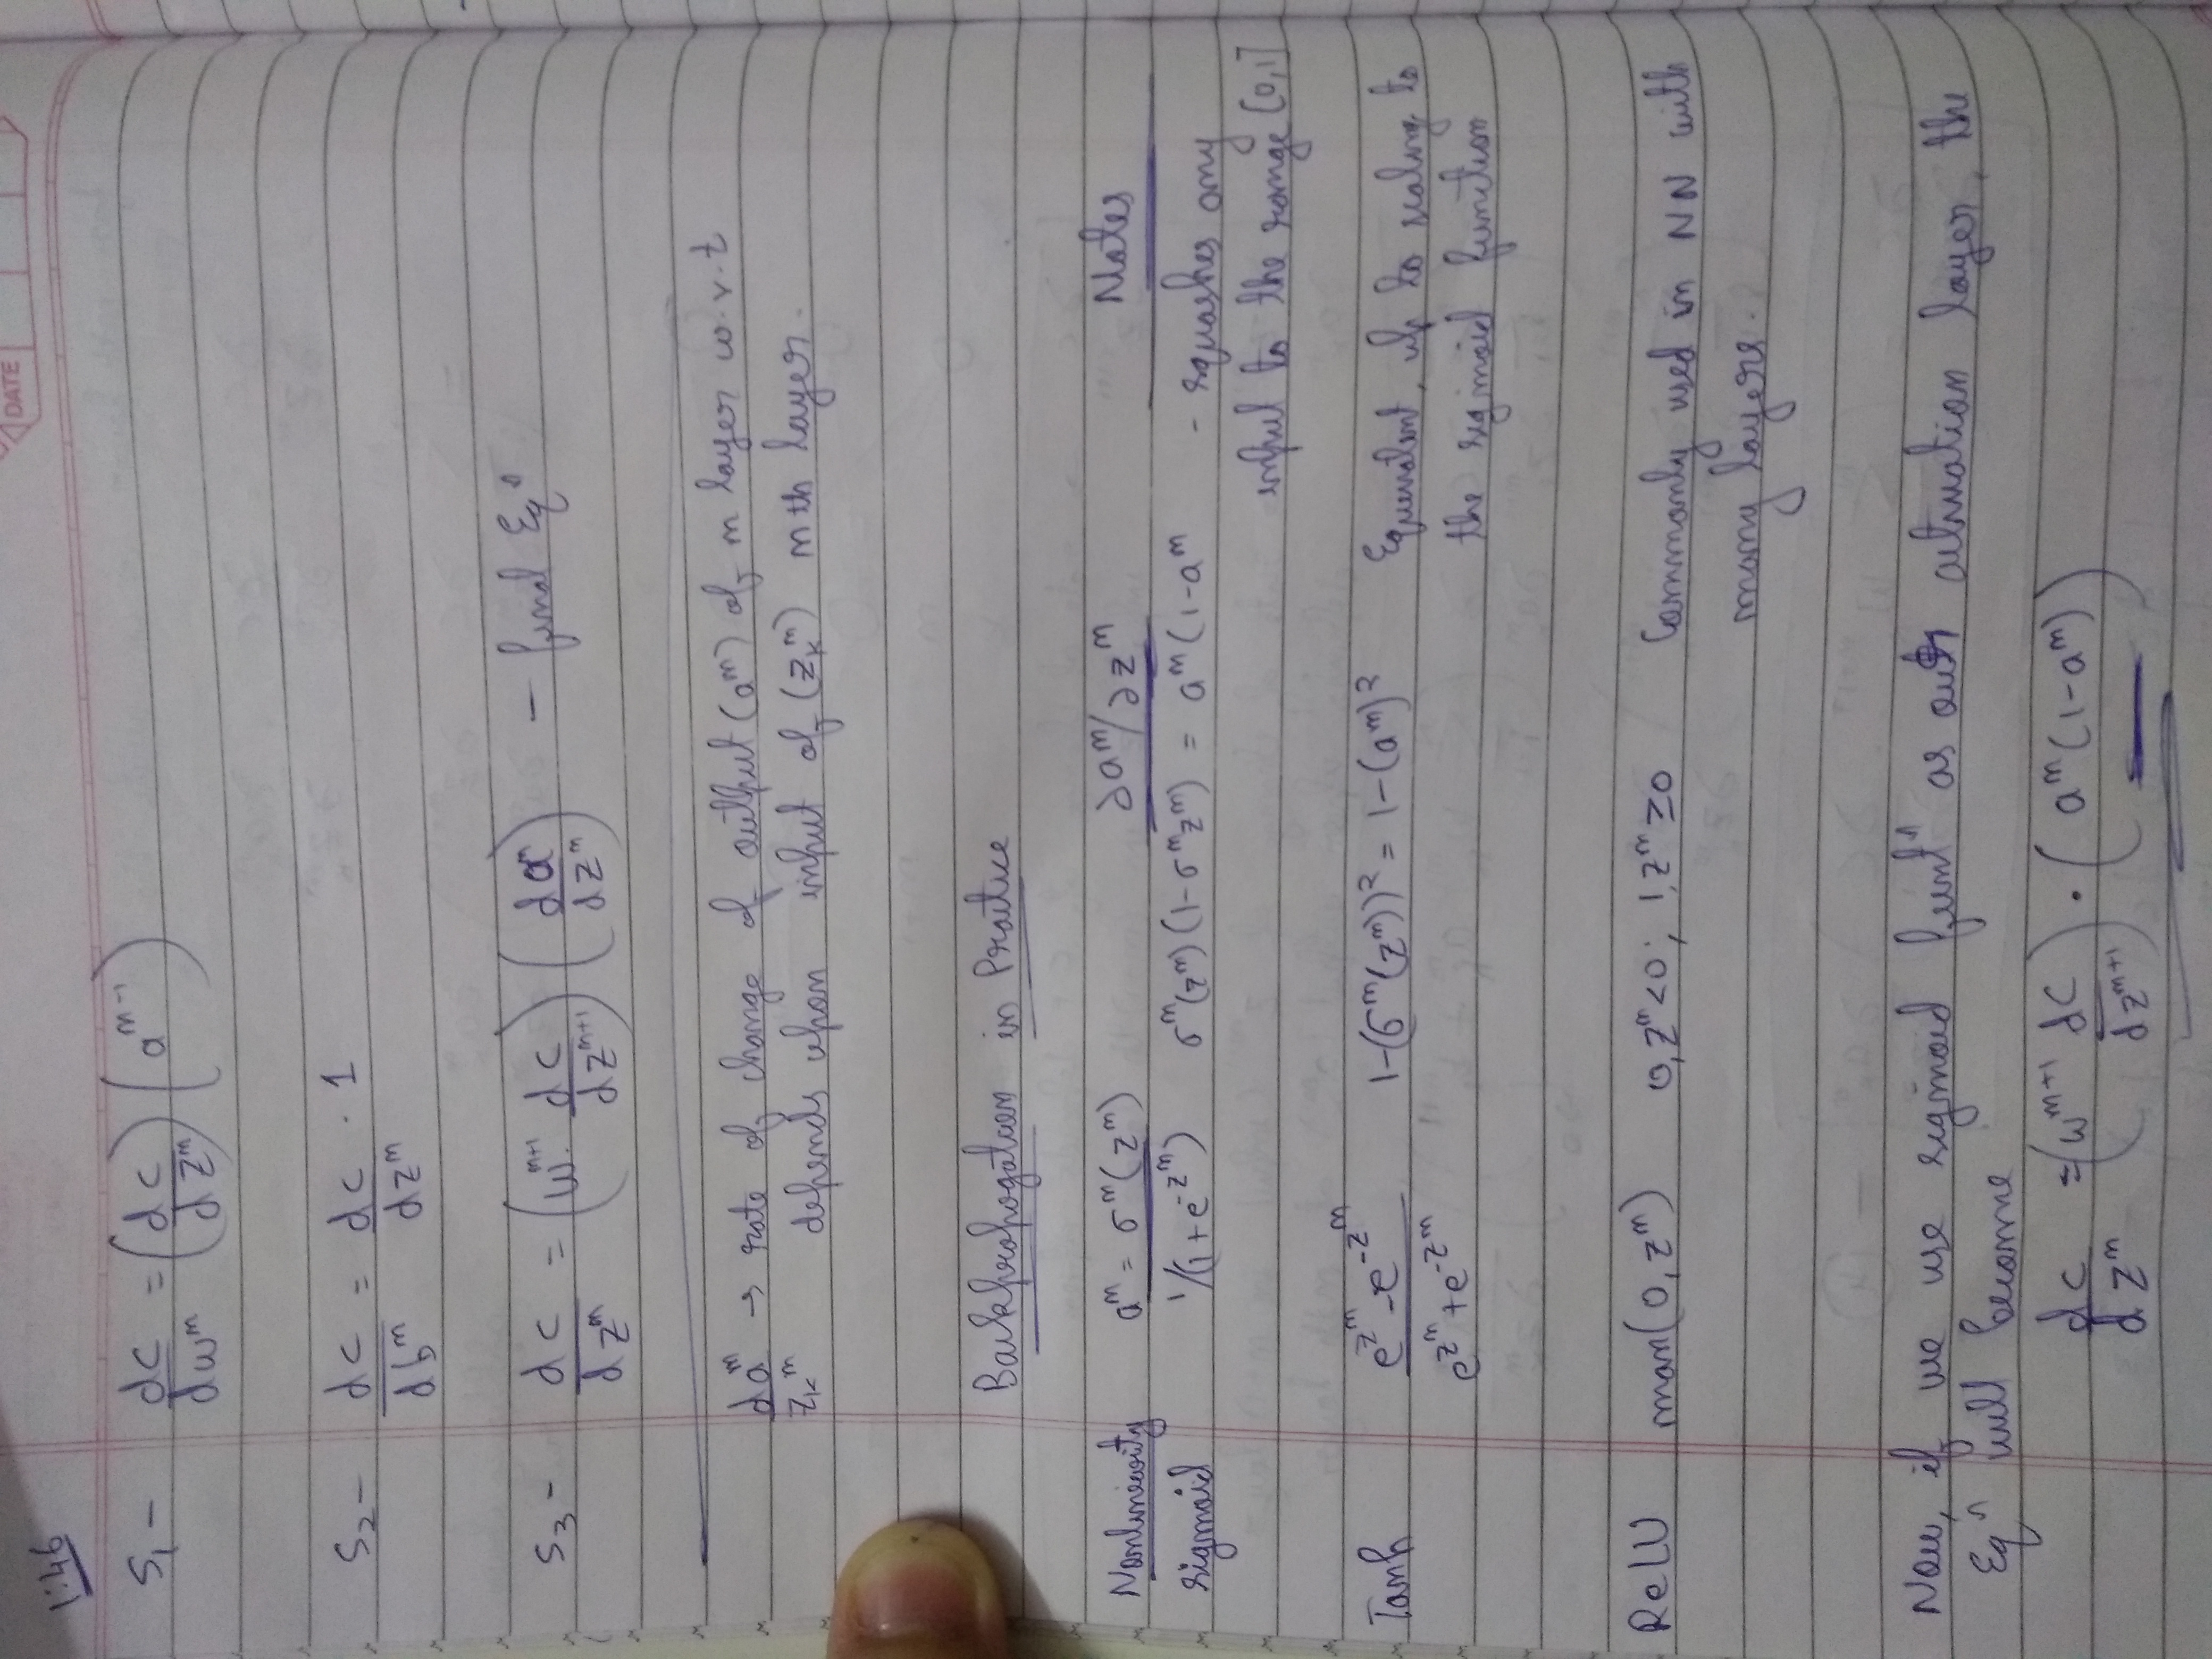 1:46
DATE
S₁ - dC/dwᵐ = (dC/dzᵐ) (aᵐ⁻¹)
S₂ - dC/dbᵐ = dC/dzᵐ · 1
S₃ - dC/dzᵐ = (wᵐ⁺¹· dC/dzᵐ⁺¹) (daᵐ/dzᵐ) - final Eqⁿ
daᵐ/zₖᵐ → rate of change of output (aᵐ) of m layer w.r.t
depends upon input of (zₖᵐ) mth layer.
Backpropogation in Practice
Nonlinearity aᵐ = σᵐ(zᵐ) ∂aᵐ/∂zᵐ Notes
sigmoid 1/(1+e^-zᵐ) σᵐ(zᵐ)(1-σᵐzᵐ) = aᵐ(1-aᵐ - squashes any
input to the range [0,1]
Tanh (e^zᵐ - e^-zᵐ)/(e^zᵐ + e^-zᵐ) 1-(σᵐ(zᵐ))² = 1-(aᵐ)² Equivalent, up to scaling to
the sigmoid function
ReLU max(0, zᵐ) 0, zᵐ<0; 1, zᵐ≥0 Commonly used in NN with
many layers.
Now, if we use sigmoid functⁿ as our activation layer, the
Eqⁿ will become
dC/dzᵐ = (wᵐ⁺¹ dC/dzᵐ⁺¹) · (aᵐ(1-aᵐ))